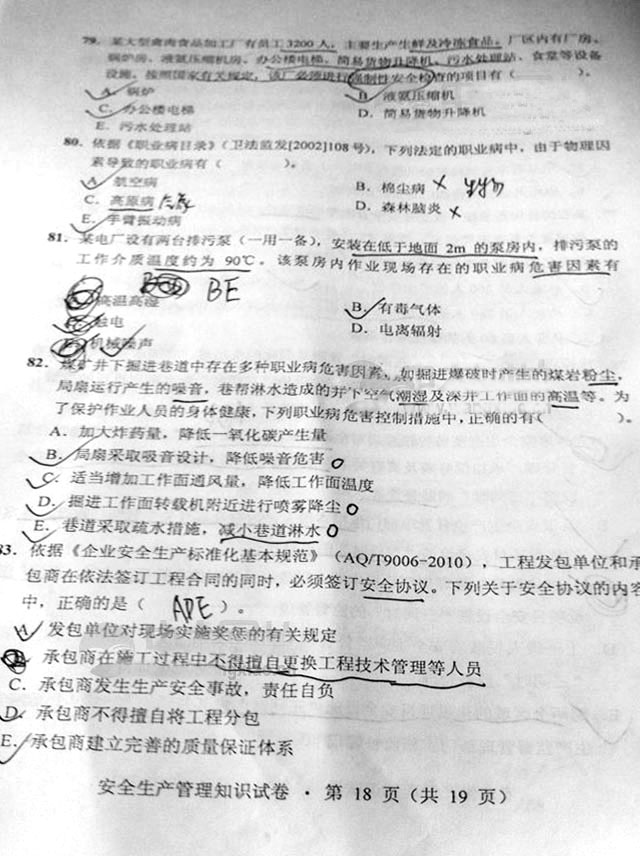 79. 某大型禽肉食品加工厂有员工3200人，主要生产生鲜及冷冻食品。厂区内有厂房、
锅炉房、液氨压缩机房、办公楼电梯、简易货物升降机、污水处理站、食堂等设备
设施。按照国家有关规定，该厂必须进行强制性安全检查的项目有（　　）。
A. 锅炉　　B. 液氨压缩机
C. 办公楼电梯　　D. 简易货物升降机
E. 污水处理站
80. 依据《职业病目录》（卫法监发[2002]108号），下列法定的职业病中，由于物理因
素导致的职业病有（　　）。
A. 航空病　　B. 棉尘病 × 生物
C. 高原病　　D. 森林脑炎 ×
E. 手臂振动病
81. 某电厂设有两台排污泵（一用一备），安装在低于地面 2m 的泵房内，排污泵的
工作介质温度约为 90℃。该泵房内作业现场存在的职业病危害因素有
BE
A. 高温高湿　　B. 有毒气体
C. 触电　　D. 电离辐射
E. 机械噪声
82. 煤矿井下掘进巷道中存在多种职业病危害因素，如掘进爆破时产生的煤岩粉尘，
局扇运行产生的噪音，巷帮淋水造成的井下空气潮湿及深井工作面的高温等。为
了保护作业人员的身体健康，下列职业病危害控制措施中，正确的有（　　）。
A. 加大炸药量，降低一氧化碳产生量
B. 局扇采取吸音设计，降低噪音危害
C. 适当增加工作面通风量，降低工作面温度
D. 掘进工作面转载机附近进行喷雾降尘
E. 巷道采取疏水措施，减小巷道淋水
83. 依据《企业安全生产标准化基本规范》（AQ/T9006-2010），工程发包单位和承
包商在依法签订工程合同的同时，必须签订安全协议。下列关于安全协议的内容
中，正确的是（ ADE ）。
A. 发包单位对现场实施奖惩的有关规定
B. 承包商在施工过程中不得擅自更换工程技术管理等人员
C. 承包商发生生产安全事故，责任自负
D. 承包商不得擅自将工程分包
E. 承包商建立完善的质量保证体系
安全生产管理知识试卷 · 第 18 页（共 19 页）